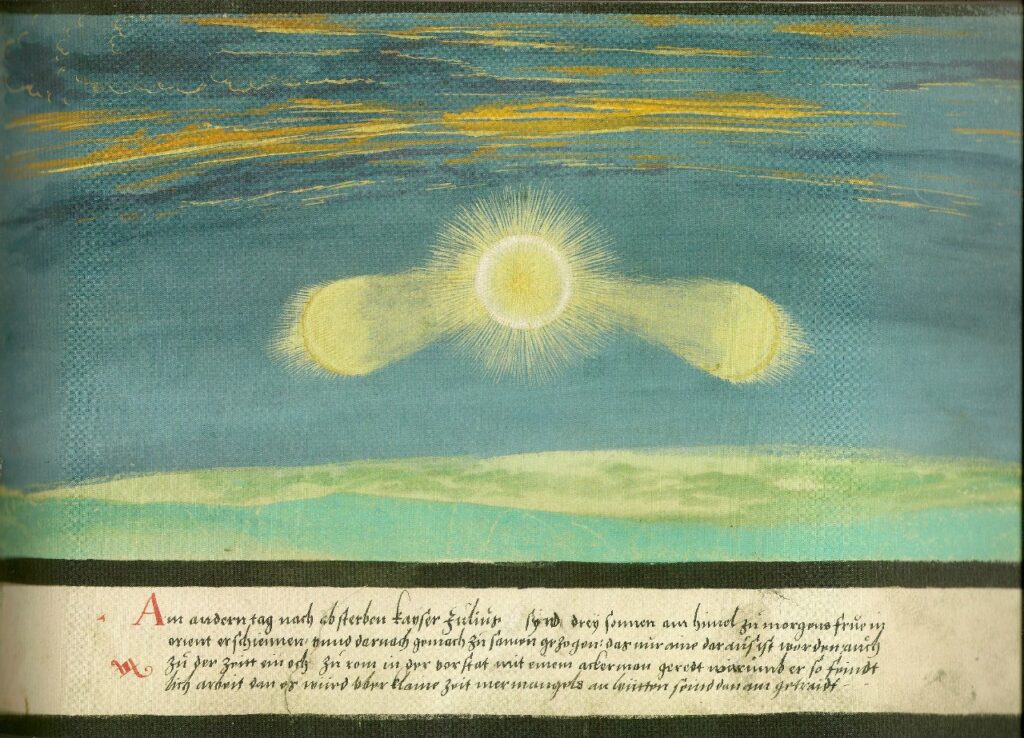 Am andern tag nach absterben kayser Julius sind drey sonnen am himel zu morgens frue in
orient erschienen vnnd darnach gemach zu samen gezogen das nur aine daraus ist worden auch
zu der zeitt ein ochs zu rom in der vorstat mit einem ackerman geredt warumb er so
lich arbeit dan es würd vber klaine zeit mer mangels an leütten sein dan am getraidt